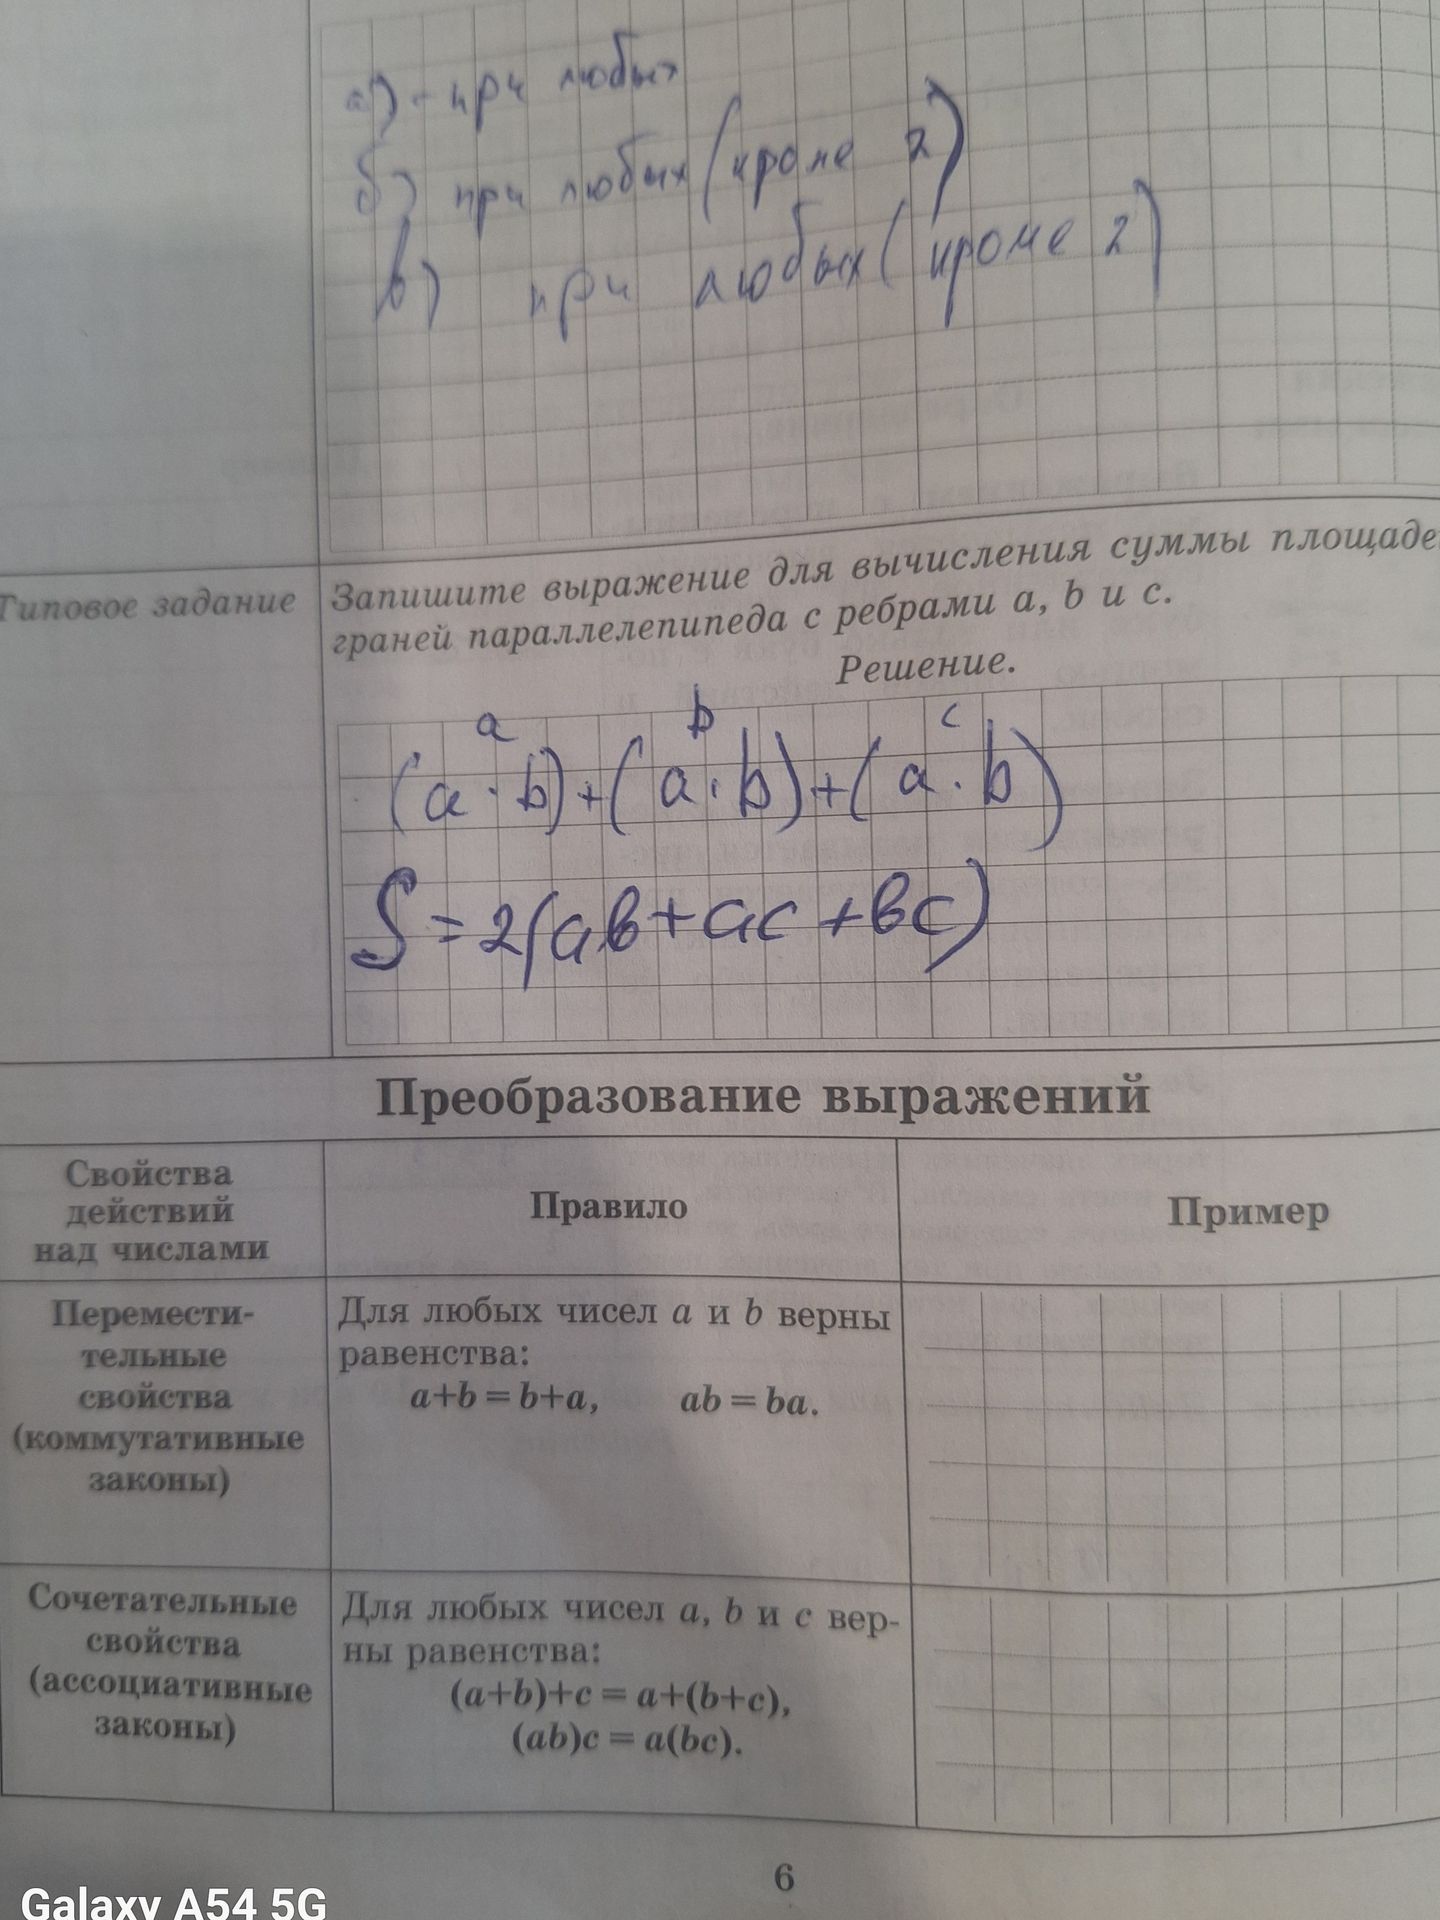 а) - при любых
б) при любых (кроме 2)
в) при любых (кроме 2)
Типовое задание
Запишите выражение для вычисления суммы площаде
граней параллелепипеда с ребрами a, b и c.
Решение.
a b c
(a · b) + (a · b) + (a · b)
S = 2(ав + ас + вс)
Преобразование выражений
Свойства
действий
над числами
Правило
Пример
Перемести-
тельные
свойства
(коммутативные
законы)
Для любых чисел a и b верны
равенства:
a+b = b+a, ab = ba.
Сочетательные
свойства
(ассоциативные
законы)
Для любых чисел a, b и c вер-
ны равенства:
(a+b)+c = a+(b+c),
(ab)c = a(bc).
6
Galaxy A54 5G